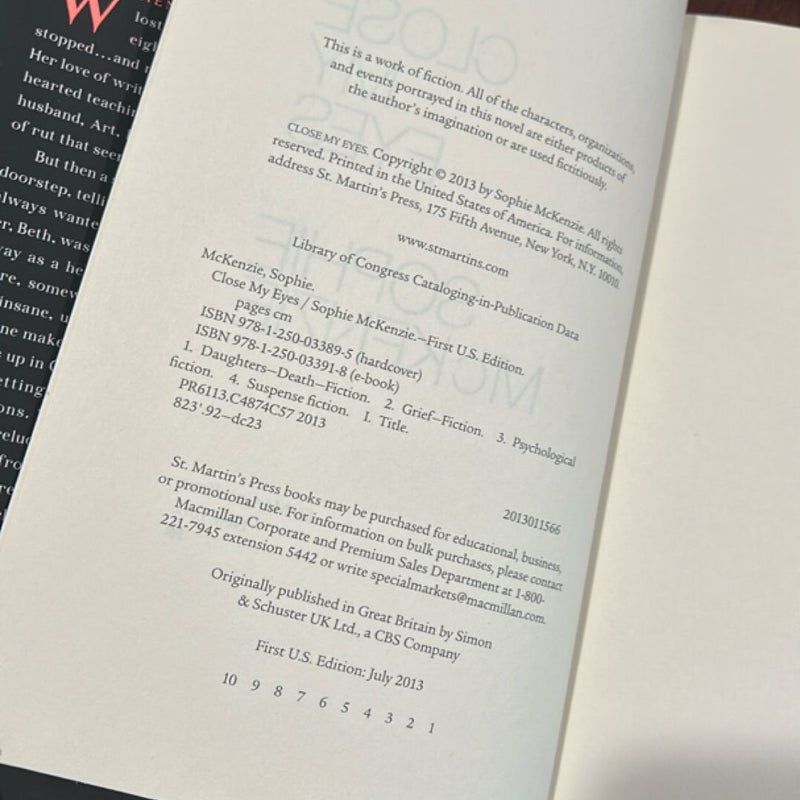 lost
eigh
stopped...and
Her love of writ
hearted teachin
husband, Art,
of rut that see
But then a
doorstep, telli
always wante
r, Beth, was
way as a he
re, somew
insane, u
ne make
up in
etting
ons.
reluc
fro
This is a work of fiction. All of the characters, organizations,
and events portrayed in this novel are either products of
the author's imagination or are used fictitiously.
CLOSE MY EYES. Copyright © 2013 by Sophie McKenzie. All rights
reserved. Printed in the United States of America. For information,
address St. Martin's Press, 175 Fifth Avenue, New York, N.Y. 10010.
www.stmartins.com
Library of Congress Cataloging-in-Publication Data
McKenzie, Sophie.
Close My Eyes / Sophie McKenzie.—First U.S. Edition.
pages cm
ISBN 978-1-250-03389-5 (hardcover)
ISBN 978-1-250-03391-8 (e-book)
1. Daughters—Death—Fiction. 2. Grief—Fiction. 3. Psychological
fiction. 4. Suspense fiction. I. Title.
PR6113.C4874C57 2013
823'.92—dc23
2013011566
St. Martin's Press books may be purchased for educational, business,
or promotional use. For information on bulk purchases, please contact
Macmillan Corporate and Premium Sales Department at 1-800-
221-7945 extension 5442 or write specialmarkets@macmillan.com.
Originally published in Great Britain by Simon
& Schuster UK Ltd., a CBS Company
First U.S. Edition: July 2013
10 9 8 7 6 5 4 3 2 1